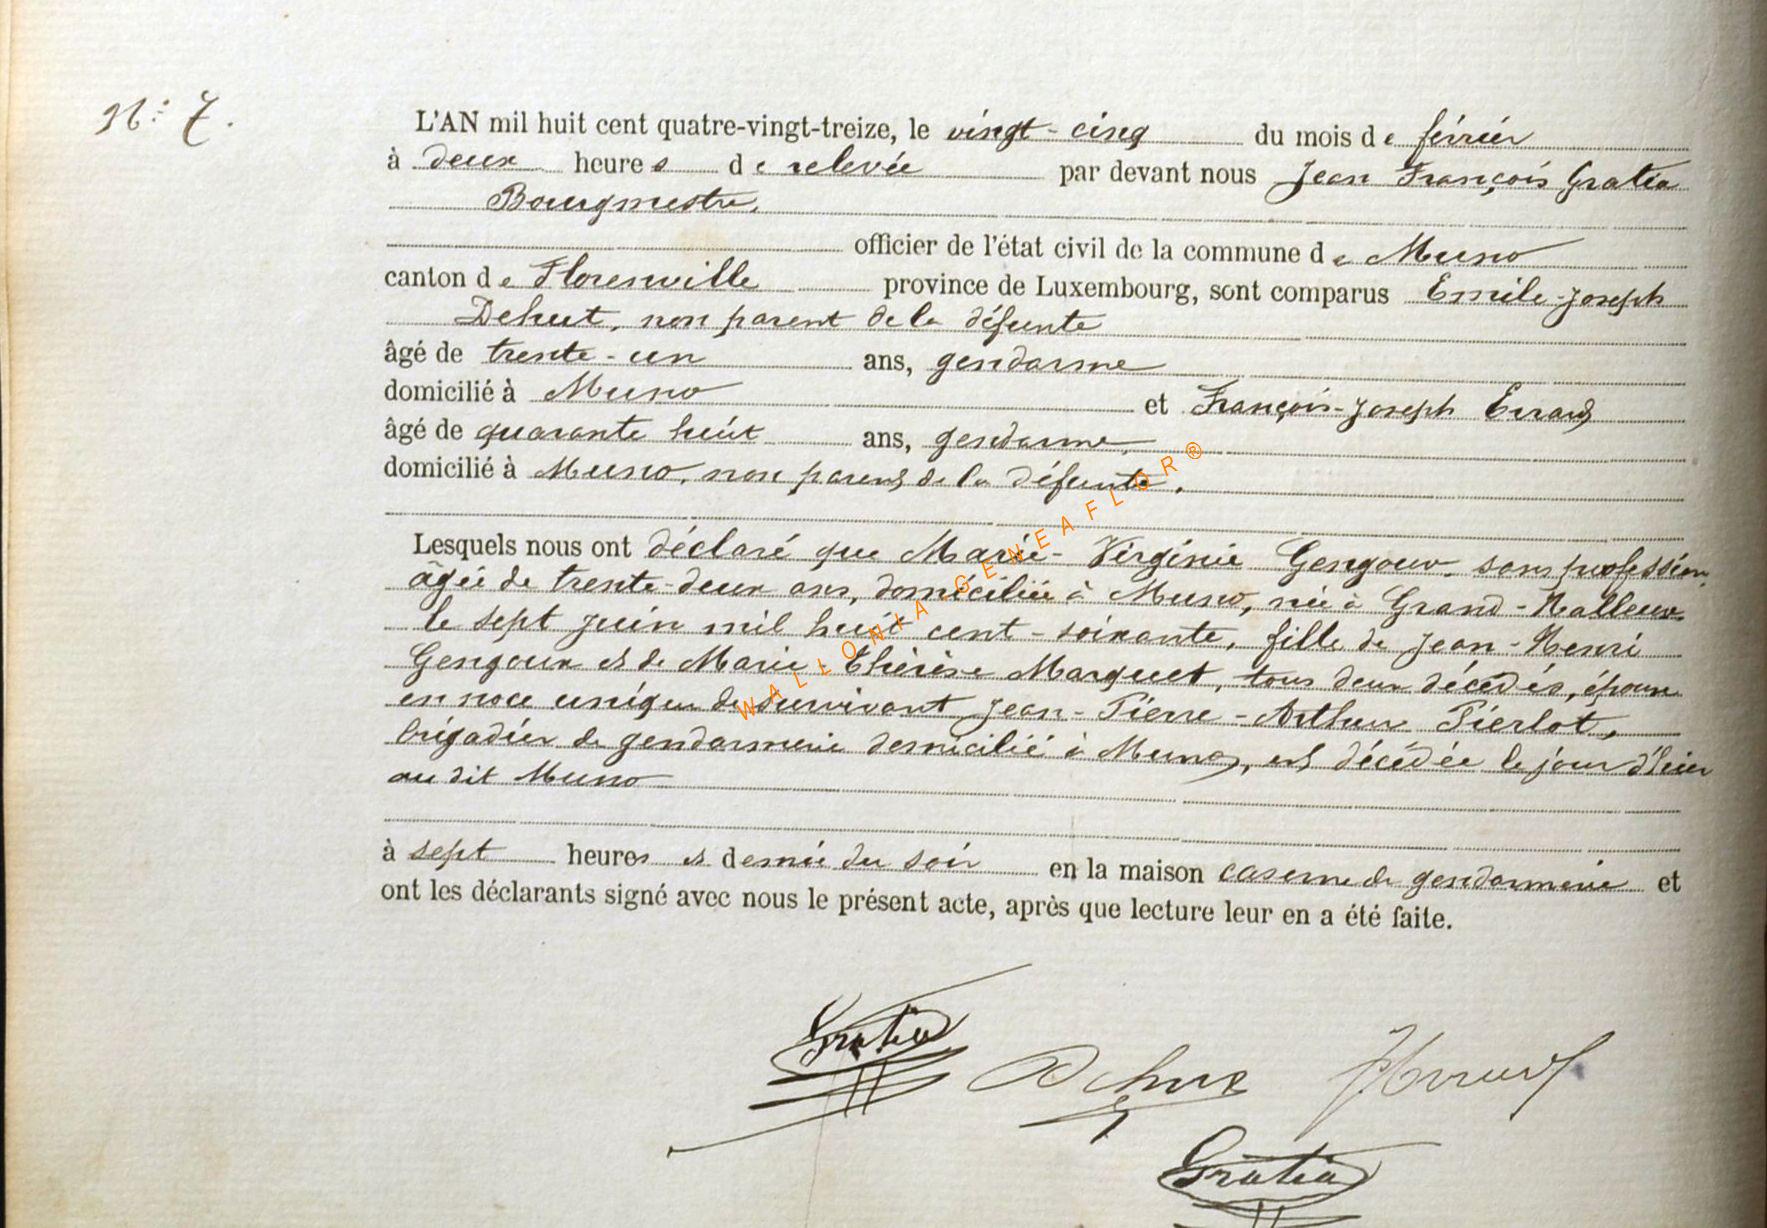 N° 7.
L'AN mil huit cent quatre-vingt-treize, le vingt-cinq du mois de février
à deux heures de relevée par devant nous Jean François Gratia
Bourgmestre,
officier de l'état civil de la commune de Muno
canton de Florenville province de Luxembourg, sont comparus Emile-Joseph
Dehut, non parent de la défunte
âgé de trente-un ans, gendarme
domicilié à Muno et François-Joseph Errard
âgé de quarante huit ans, gendarme,
domicilié à Muno, non parent de la défunte.
Lesquels nous ont déclaré que Marie-Virginie Gengoux sans profession,
âgée de trente-deux ans, domiciliée à Muno, née à Grand-Halleux
le sept juin mil huit cent-soixante, fille de Jean-Henri
Gengoux et de Marie Thérèse Marquet, tous deux décédés, épouse
en noce unique du survivant Jean-Pierre-Arthur Pierlot,
brigadier de gendarmerie domicilié à Muno, est décédée le jour d'hier
au dit Muno
à sept heures et demie du soir en la maison caserne de gendarmerie et
ont les déclarants signé avec nous le présent acte, après que lecture leur en a été faite.
Gratia Dehut
Gratia
WALLONIA-GENEAFLOR®